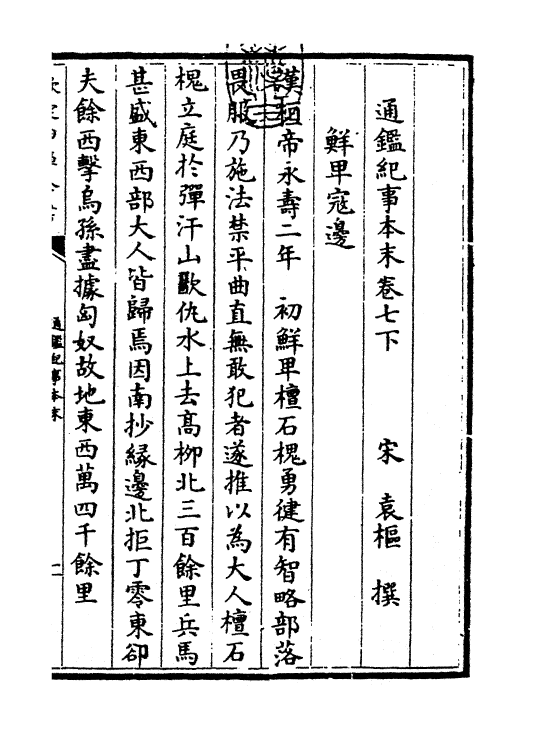 通鑑紀事本末卷七下
宋　袁樞　撰
鮮卑寇邊
漢桓帝永壽二年　初鮮卑檀石槐勇健有智略部落
畏服乃施法禁平曲直無敢犯者遂推以為大人檀石
槐立庭於彈汗山歠仇水上去髙栁北三百餘里兵馬
甚盛東西部大人皆歸焉因南抄縁邊北拒丁零東卻
夫餘西擊烏孫盡據匈奴故地東西萬四千餘里
通鑑紀事本末